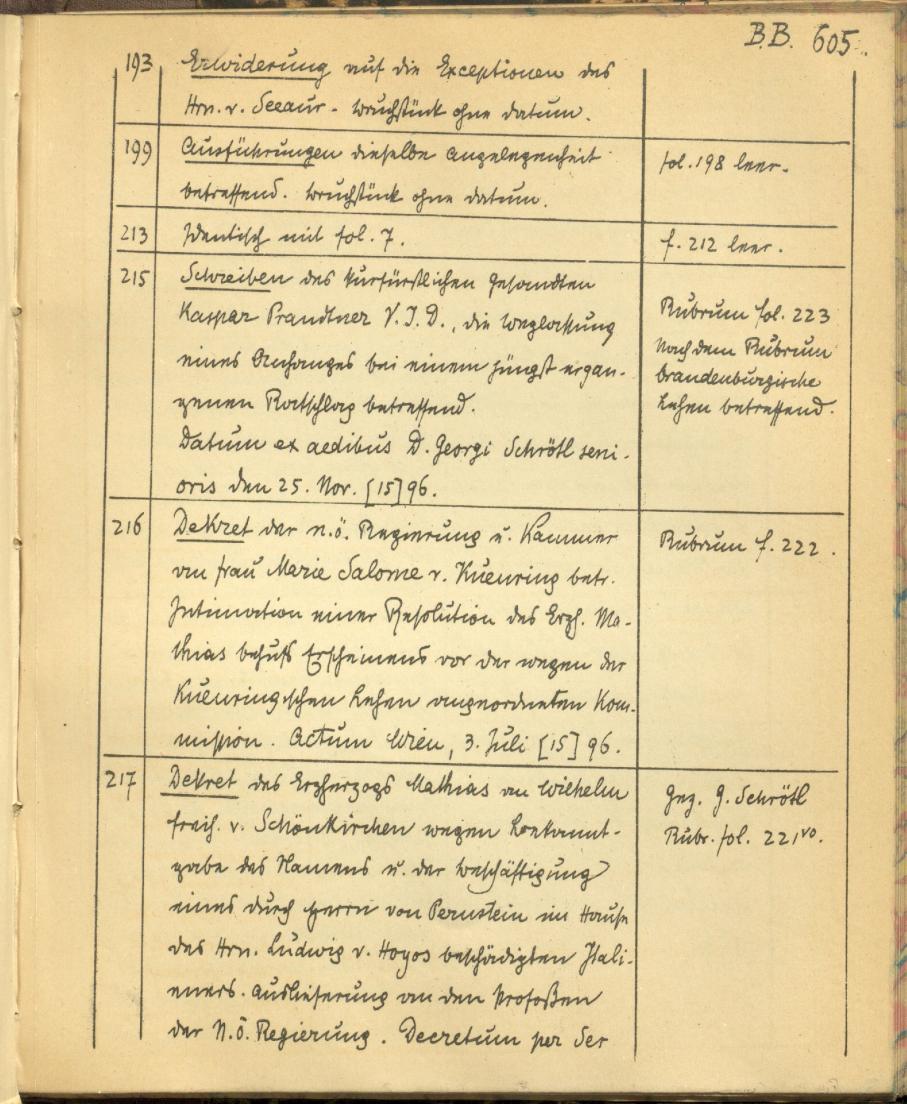 B.B. 605.
193 Erwiderung auf die Exceptionen des
Hrn. v. Seeaur - Bruchstück ohne Datum.
199 Ausführungen dieselbe Angelegenheit
betreffend. Bruchstück ohne Datum.
fol. 198 leer.
213 Identisch mit fol. 7.
f. 212 leer.
215 Schreiben des kurfürstlichen Gesandten
Kaspar Prandtner V.I.D., die Weglassung
eines Anhanges bei einem jüngst ergan-
genen Ratschlag betreffend.
Datum ex aedibus D. Georgi Schrötl seni-
oris den 25. Nov. [15]96.
Rubrum fol. 223
Nach dem Rubrum
brandenburgische
Lehen betreffend.
216 Dekret der n.ö. Regierung u. Kammer
an Frau Marie Salome v. Kuenring betr.
Intimation einer Resolution des Erzh. Ma-
thias behufs Erscheinens vor der wegen der
Kuenringischen Lehen angeordneten Kom-
mission. Actum Wien, 3. Juli [15]96.
Rubrum f. 222.
217 Dekret des Erzherzogs Mathias an Wilhelm
Freih. v. Schönkirchen wegen Bekannt-
gabe des Namens u. der Beschäftigung
eines durch Herrn von Pernstein im Hause
des Hrn. Ludwig v. Hoyos beschädigten Itali-
eners. Auslieferung an den Profoßen
der N.Ö. Regierung. Decretum per Ser
Gez. G. Schrötl
Rubr. fol. 221vo.